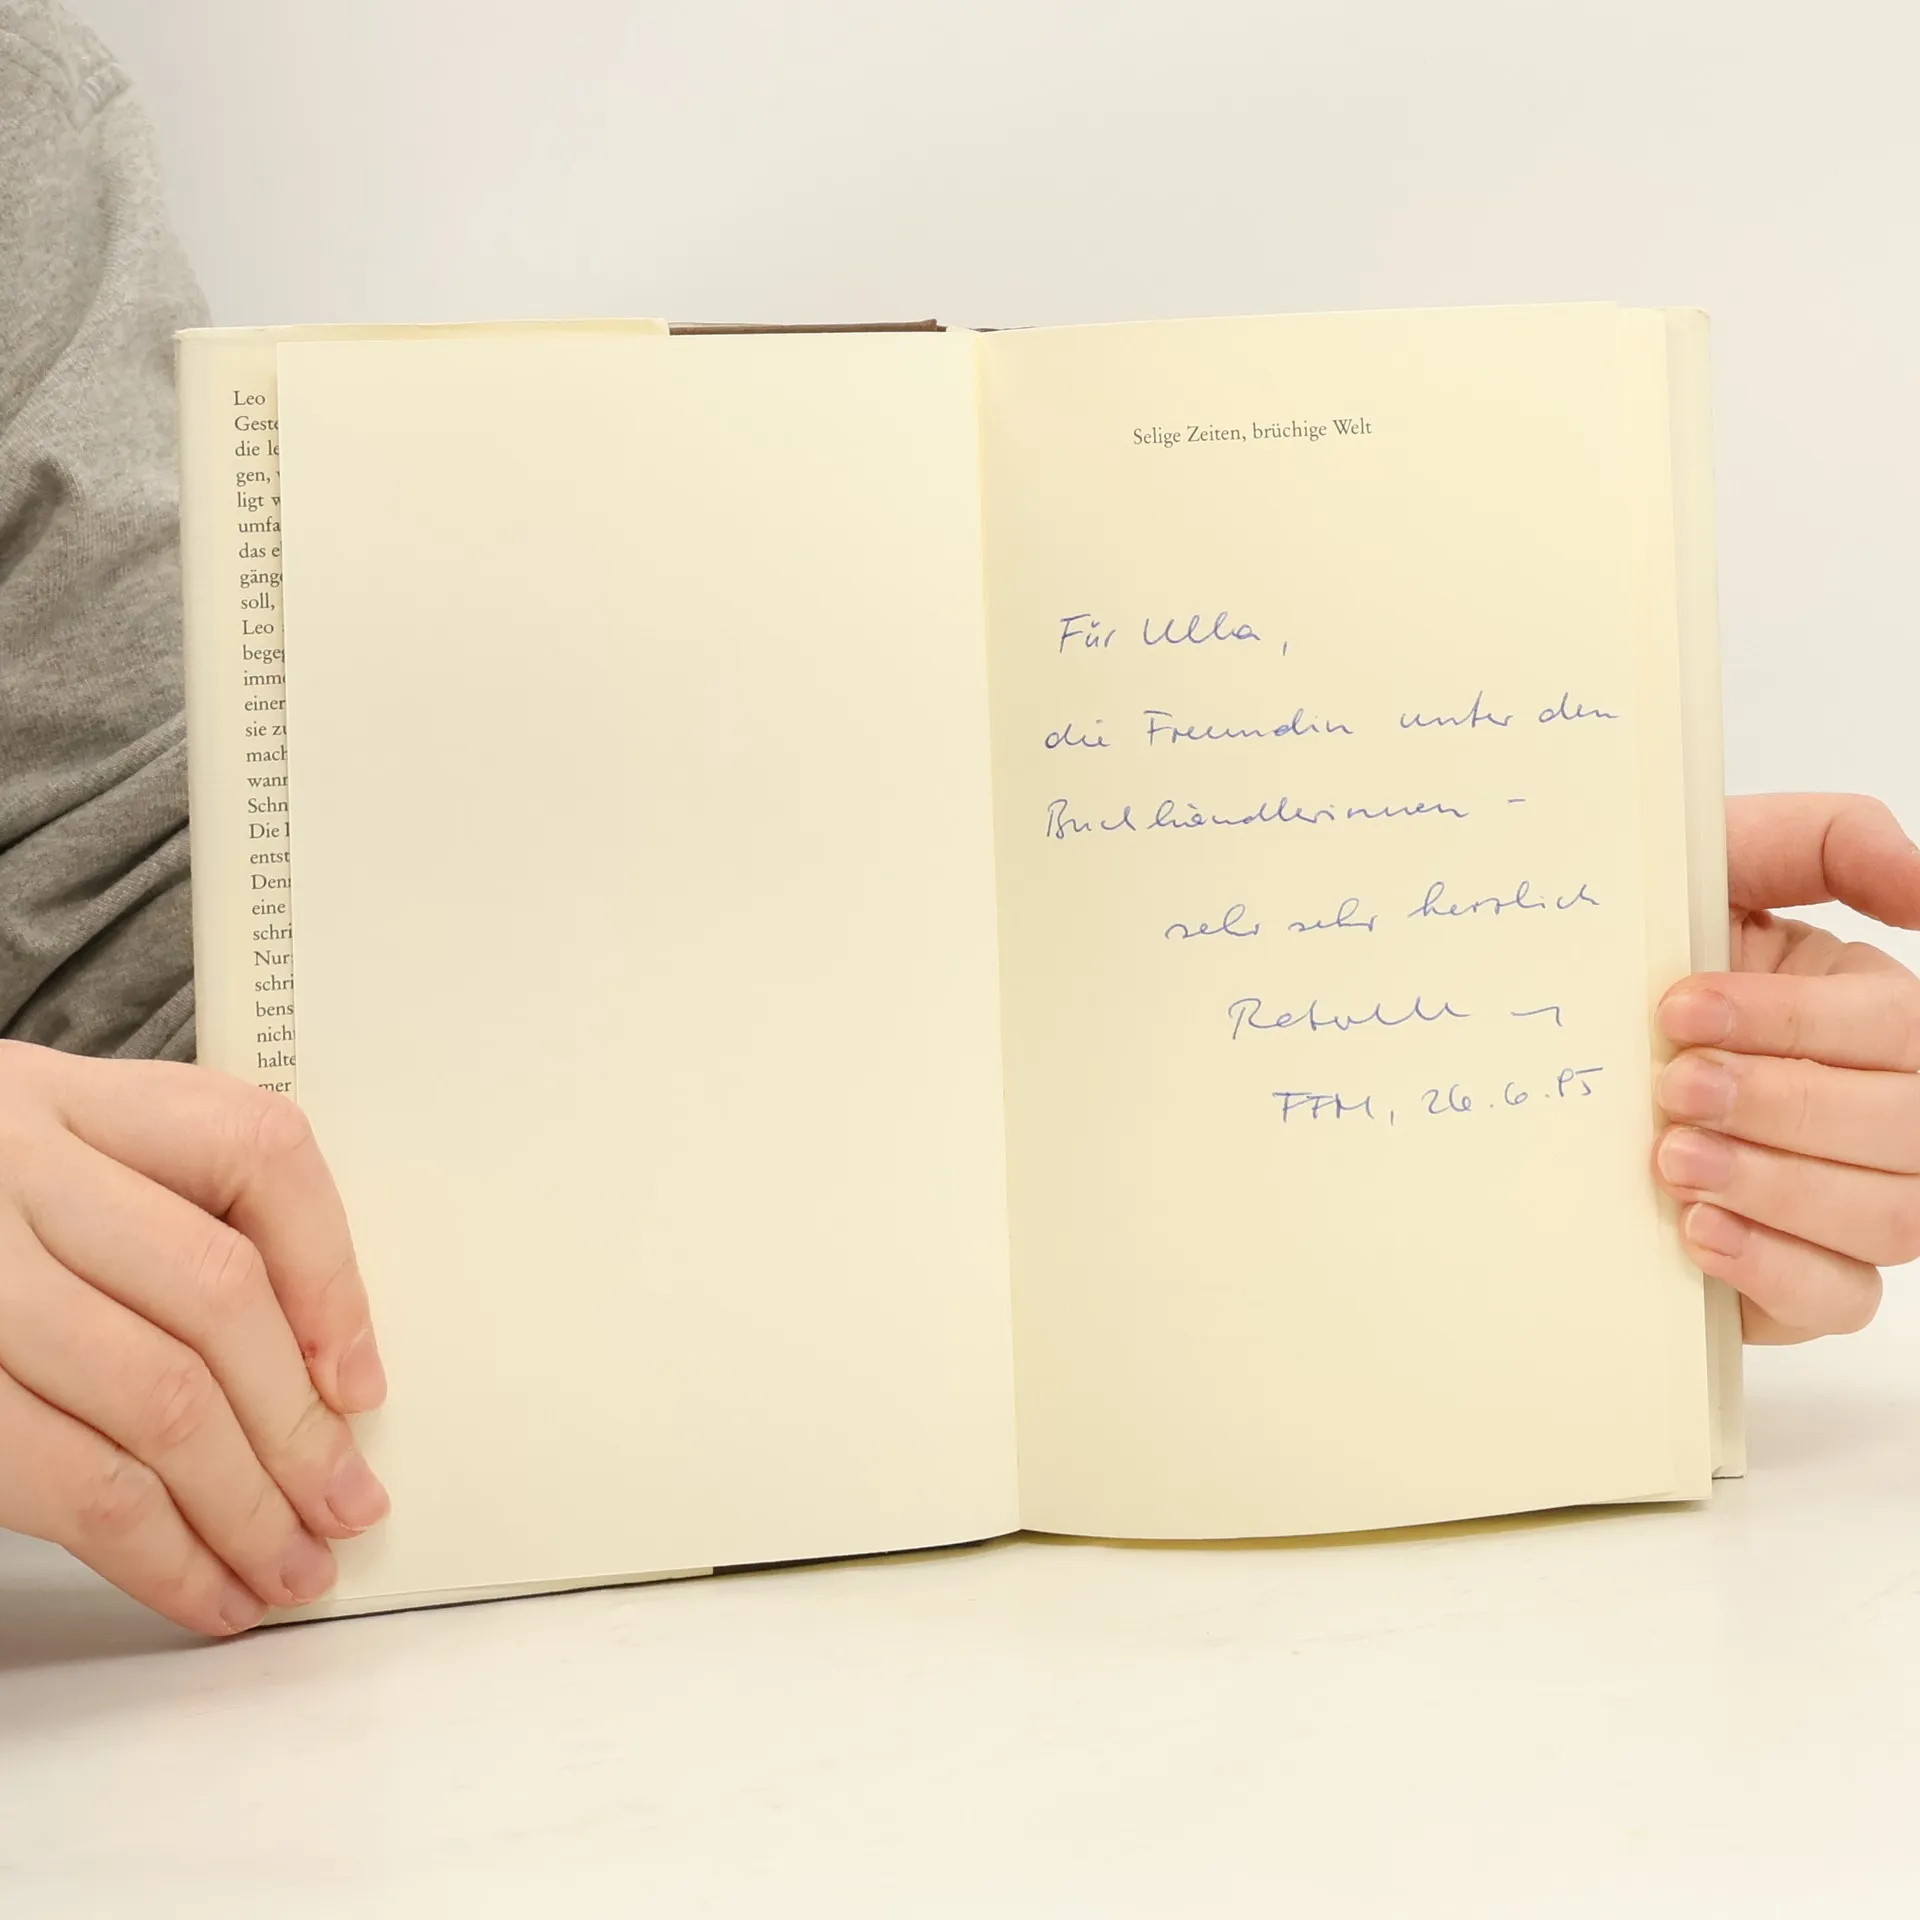 Leo
Geste
die le
gen,
ligt w
umfa
das e
gänge
soll,
Leo
begeg
imme
einer
sie zu
mach
wann
Schn
Die l
entst
Denn
eine
schri
Nur
schri
bens
nicht
halte
mer
Selige Zeiten, brüchige Welt
Für Ulla,
die Freundin unter den
Buchhändlerinnen –
sehr sehr herzlich
FFM, 26.6.95